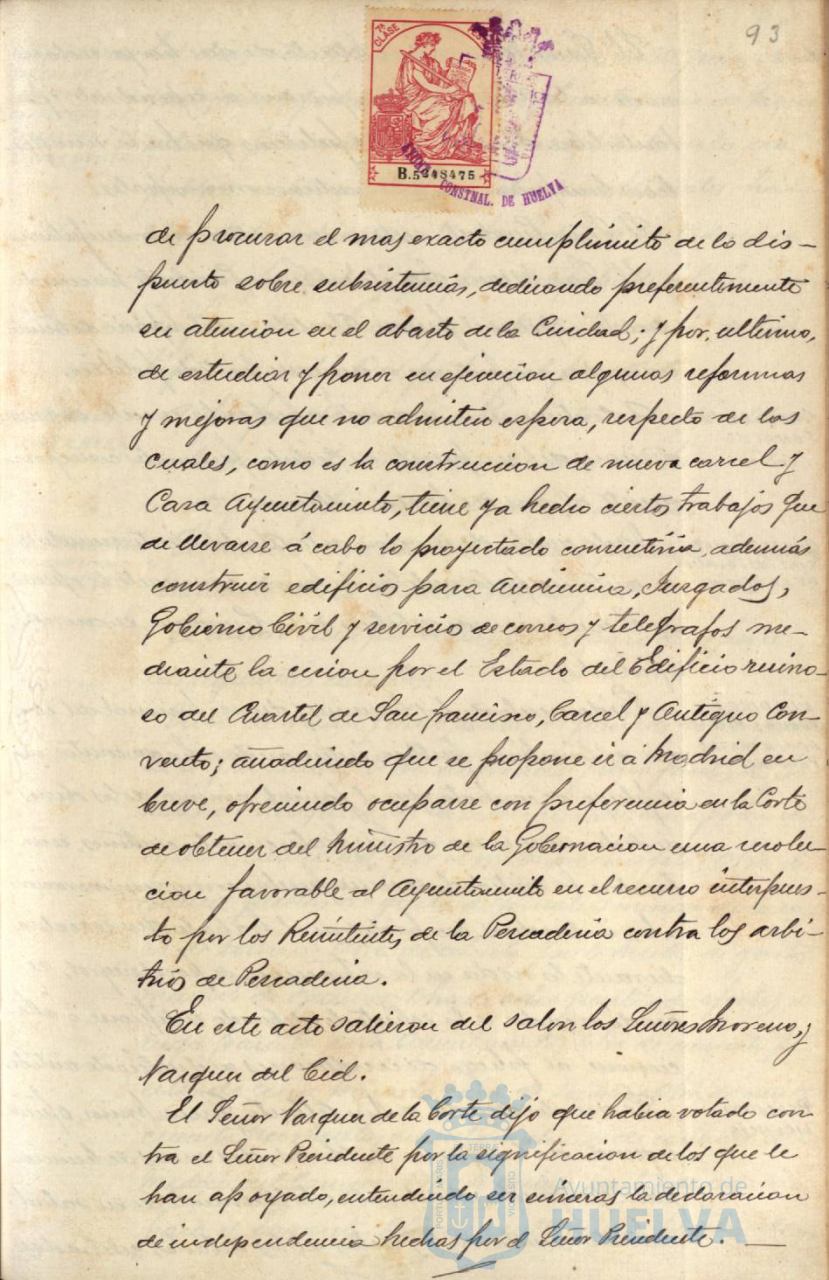 93
7ª CLASE
B.5248475
CONSTNAL. DE HUELVA
de procurar el mas exacto cumplimiento de lo dis-
puesto sobre subsistencias, dedicando preferentemente
su atencion en el abasto de la Ciudad; y por ultimo,
de estudiar y poner en ejecucion algunas reformas
y mejoras que no admiten espera, respecto de las
cuales, como es la construccion de nueva carcel y
Casa Ayuntamiento, tiene ya hecho ciertos trabajos que
de llevarse á cabo lo proyectado consentiria, además
construir edificios para Audiencia, Juzgados,
Gobierno Civil y servicio de correos y telegrafos me-
diante la cesion por el Estado del Edificio ruino-
so del Cuartel de San francisco, Carcel y Antiguo Con-
vento; añadiendo que se propone ir á Madrid en
breve, ofreciendo ocuparse con preferencia en la Corte
de obtener del Ministro de la Gobernacion una resolu-
cion favorable al Ayuntamiento en el recurso interpues-
to por los Remitentes de la Pescaderia contra los arbi-
trios de Pescaderia.
En este acto salieron del salon los Señores Moreno, y
Vazquez del Cid.
El Señor Vazquez de la Corte dijo que habia votado con-
tra el Señor Presidente por la significacion de los que le
han apoyado, entendiendo ser sinceras la declaracion
de independencia hechas por el Señor Presidente.
Ayuntamiento de
HUELVA